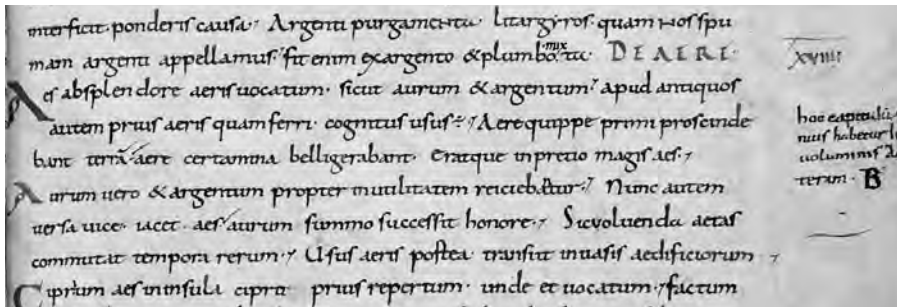 interficit· ponderis causa· Argenti purgamenta· litargyros· quam nos spu
mam argenti appellamus· fit enim ex argento & plumbo mixtu· DE AERE· xviiii
Aes ab splendore aeris uocatum· sicut aurum & argentum· apud antiquos
autem prius aeris quam ferri· cognitus usus÷ Aere quippe primi proscinde
bant terrā· aere certamina belligerabant· eratque in pretio magis aes·
Aurum uero & argentum propter inutilitatem reiciebatur· Nunc autem
uersa uice· iacet· aes/ aurum summo successit honore· Sic uoluenda aetas
commutat tempora rerum· Usus aeris postea transiit in uasis aedificiorum
Ciprium aes in insula cipro prius repertum· unde et uocatum· factum
hoc capitulū
habetur
uolumins
terum· B